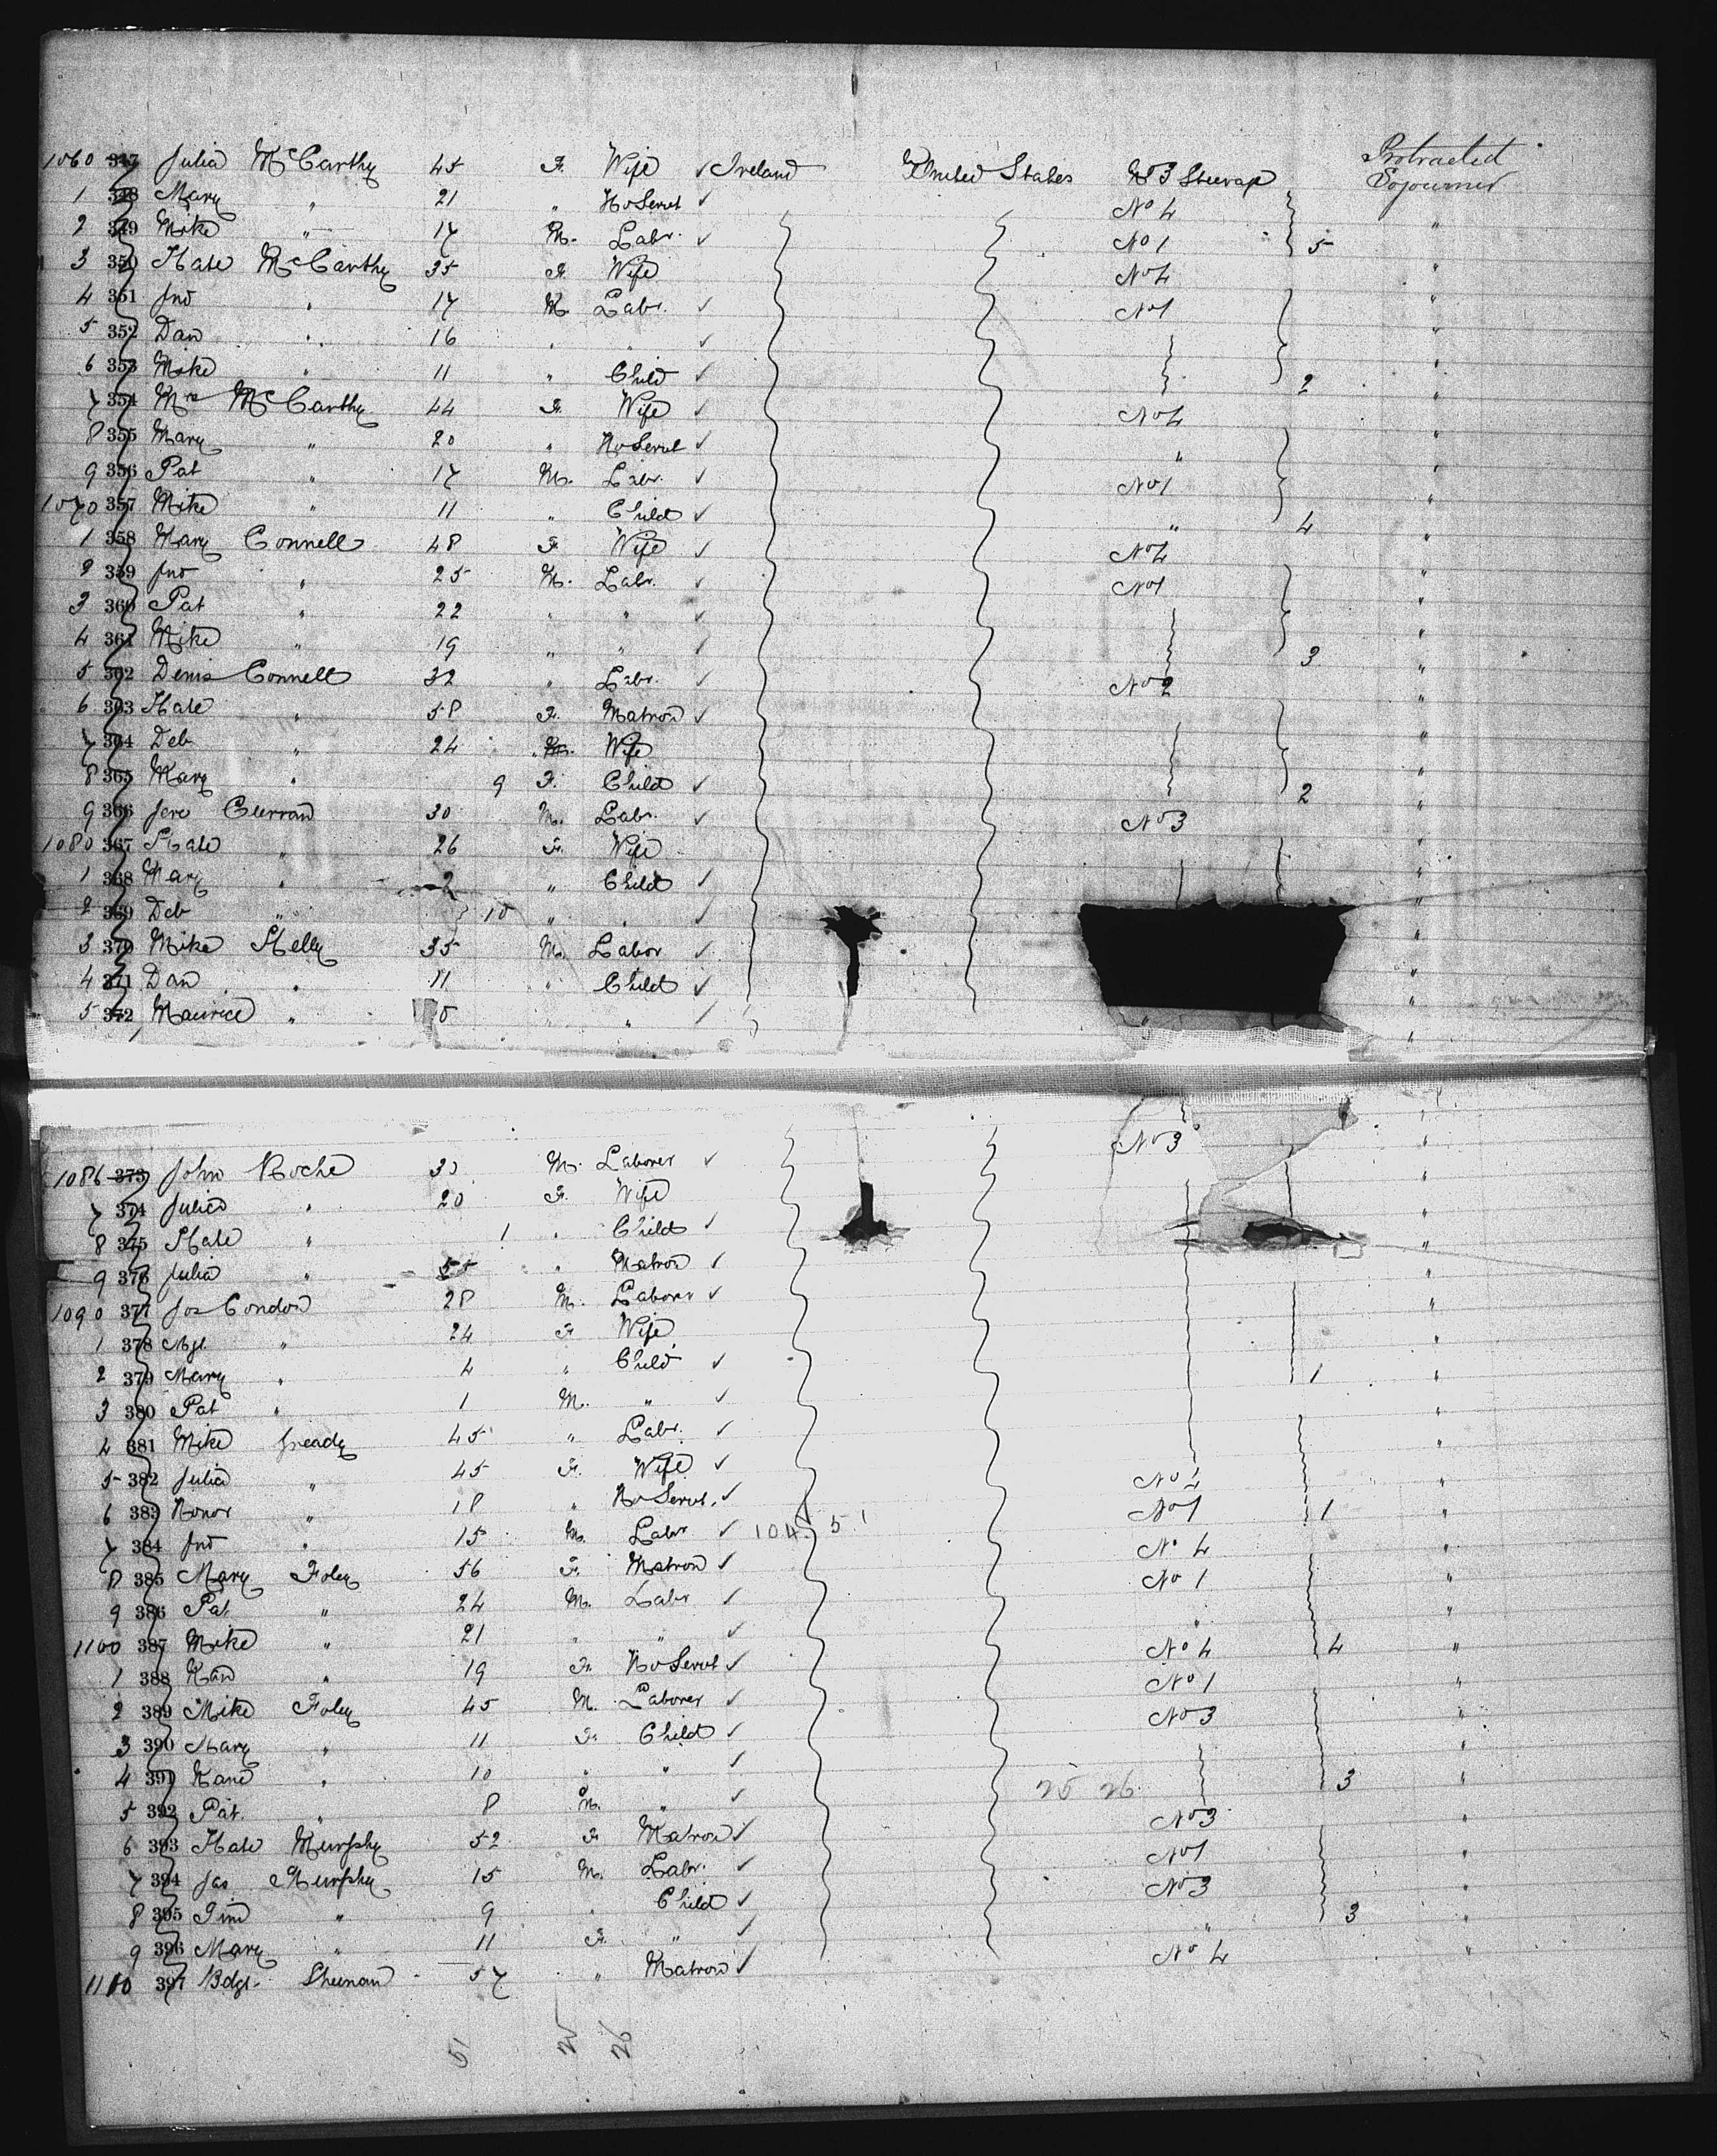 Protracted
1060 347 Julia McCarthy 45 F. Wife ✓ Ireland United States No 3 Steerage Sojourner
1 348 Mary " 21 " HoServt ✓ No 4 "
2 349 Mike " 17 M. Labr. ✓ No 1 5 "
3 350 Kate McCarthy 35 F. Wife No 4 "
4 351 Jno " 17 M. Labr. ✓ No 1 "
5 352 Dan " 16 " " ✓ "
6 353 Mike " 11 " Child ✓ 2 "
7 354 Mrs McCarthy 44 F. Wife ✓ No 4 "
8 355 Mary " 20 " HoServt ✓ " "
9 356 Pat " 17 M. Labr. ✓ No 1 "
1070 357 Mike " 11 " Child ✓ " 4 "
1 358 Mary Connell 48 F. Wife ✓ No 4 "
2 359 Jno " 25 M. Labr. ✓ No 1 "
3 360 Pat " 22 " " ✓ "
4 361 Mike " 19 " " ✓ 3 "
5 362 Denis Connell 32 " Labr. ✓ No 2 "
6 363 Kate " 58 F. Matron ✓ "
7 364 Deb " 24 M. Wife "
8 365 Mary " 9 F. Child ✓ 2 "
9 366 Jere Curran 30 M. Labr. ✓ No 3 "
1080 367 Kate " 26 F. Wife "
1 368 Mary " 2 " Child ✓ "
2 369 Deb " 10 " " ✓ "
3 370 Mike Kelly 35 M. Labor ✓ "
4 371 Dan " 11 " Child ✓ "
5 372 Maurice " " " ✓ " "
1086 373 John Roche M. Laborer ✓ No 3 "
7 374 Julia " 20 F. Wife "
8 375 Kate " 1 " Child ✓ "
9 376 Julia " 55 " Matron ✓ "
1090 377 Jas Condon 28 M. Laborer ✓ "
1 378 Mgt. " 24 F. Wife "
2 379 Mary " 4 " Child ✓ 1 "
3 380 Pat " 1 M. " ✓ "
4 381 Mike 45 " Labr. ✓ "
5 382 Julia " 45 F. Wife ✓ No 4 "
6 383 Honor " 18 " HoServt. ✓ No 1 1 "
7 384 Jno " 15 M. Labr ✓ 104 5 No 4 "
8 385 Mary Foley 56 F. Matron ✓ No 1 "
9 386 Pat. " 24 M. Labr ✓ " "
1100 387 Mike " 21 " " ✓ No 4 4 "
1 388 Han " 19 F. HoServt ✓ No 1 "
2 389 Mike Foley 45 M. Laborer ✓ No 3 "
3 390 Mary " 11 F. Child ✓ "
4 391 " 10 " " ✓ 25 26 3 "
5 392 Pat. " 8 M. " ✓ No 3 "
6 393 Kate Murphy 52 F. Matron ✓ No 1 "
7 394 Jas Murphy 15 M. Labr. ✓ No 3 "
8 395 Tim " 9 " Child ✓ " 3 "
9 396 Mary " 11 F. " ✓ No 4 "
1110 397 Bdgt. Sheenan 57 " Matron ✓
51 25 26